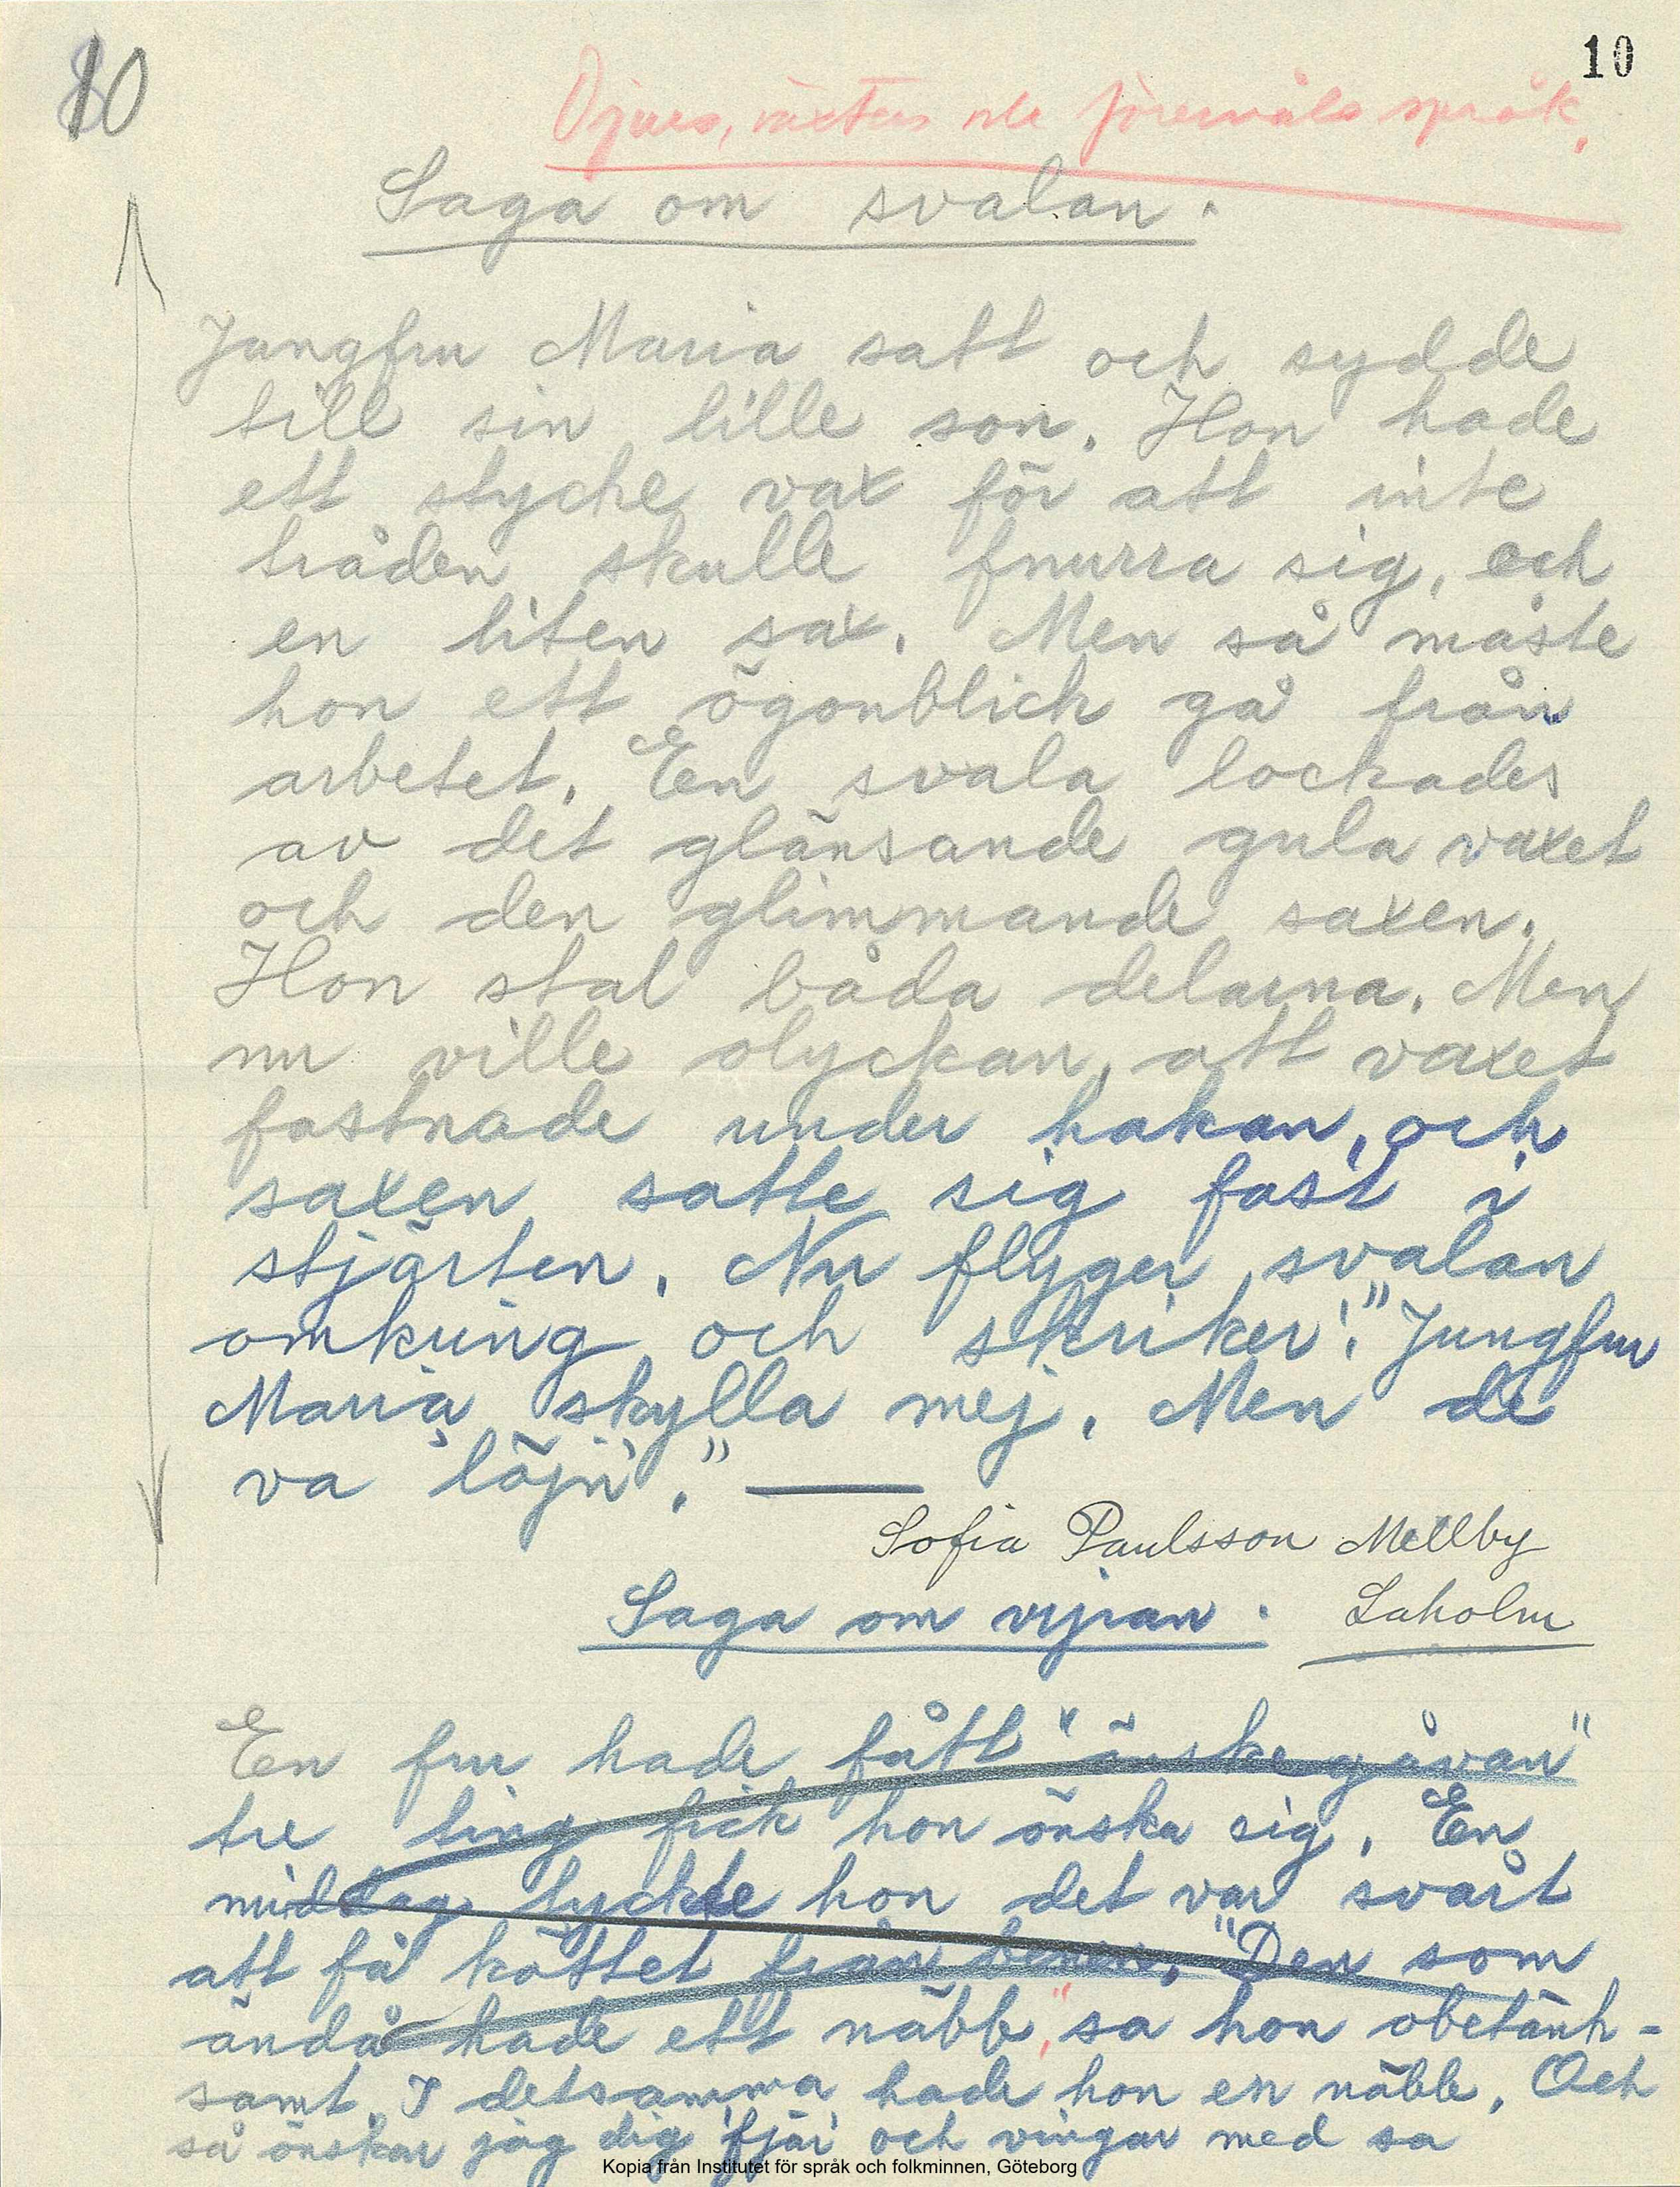 10
10
Djurs, växters och föremåls språk.
Saga om svalan.
Jungfru Maria satt och sydde
till sin lille son. Hon hade
ett stycke vax för att inte
tråden skulle fnurra sig, och
en liten sax. Men så måste
hon ett ögonblick gå från
arbetet. En svala lockades
av det glänsande gula vaxet
och den glimmande saxen.
Hon stal båda delarna. Men
nu ville olyckan, att vaxet
fastnade under hakan, och
saxen satte sig fast i
stjärten. Nu flyger svalan
omkring och skriker: "Jungfru
Maria skylla mej. Men de
va 'löjn'."
Sofia Paulsson Mellby
Laholm
Saga om vipan.
En fru hade fått "önskegåvan"
tre ting fick hon önska sig. En
middag tyckte hon det var svårt
att få köttet från benen. "Den som
ändå hade ett näbb", sa hon obetänk-
samt. I detsamma hade hon en näbb. Och
så önskar jag dig 'fjär' och vingar med sa
Kopia från Institutet för språk och folkminnen, Göteborg